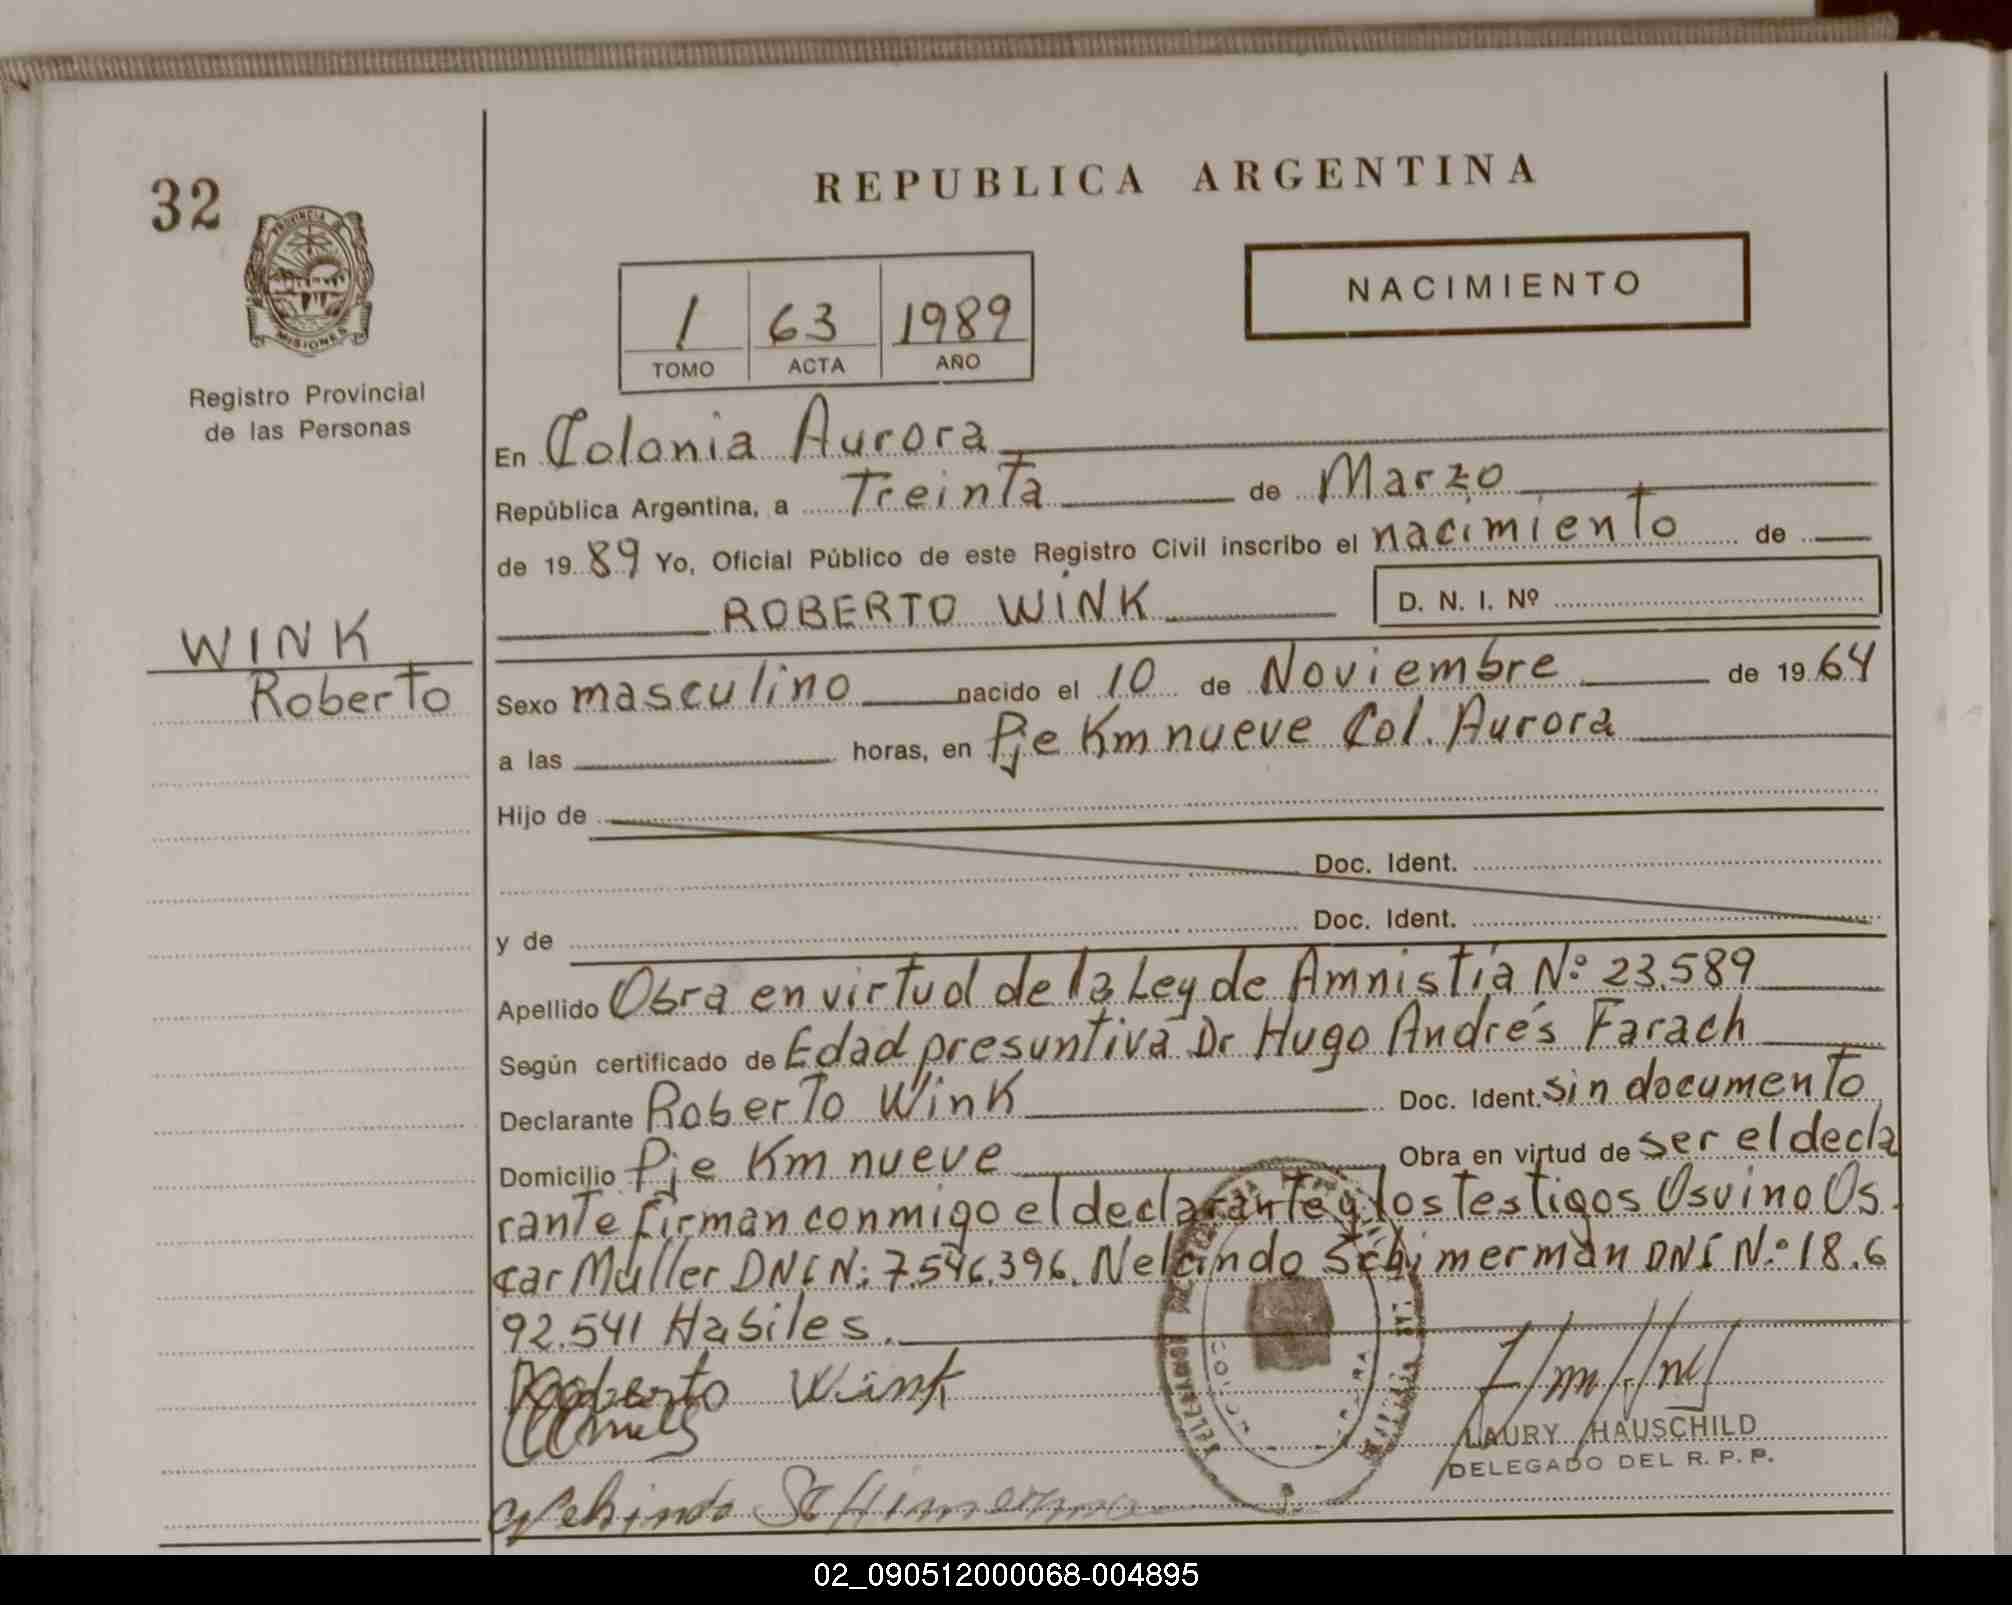 32
PROVINCIA DE
MISIONES
Registro Provincial
de las Personas
WINK
Roberto
REPUBLICA ARGENTINA
NACIMIENTO
1 63 1989
TOMO ACTA AÑO
En Colonia Aurora
República Argentina, a Treinta de Marzo
de 1989 Yo, Oficial Público de este Registro Civil inscribo el nacimiento de
ROBERTO WINK D. N. I. Nº
Sexo masculino nacido el 10 de Noviembre de 1964
a las horas, en Pje Km nueve Col. Aurora
Hijo de
Doc. Ident.
y de Doc. Ident.
Apellido Obra en virtud de la Ley de Amnistía Nº 23.589
Según certificado de Edad presuntiva Dr Hugo Andrés Farach
Declarante Roberto Wink Doc. Ident. sin documento
Domicilio Pje Km nueve Obra en virtud de ser el decla
rante firman conmigo el declarante y los testigos Osvino Os
car Muller DNI N: 7.546.396. Nelcindo Schimerman DNI Nº 18.6
92.541 Habiles.
Roberto Wink
LAURY HAUSCHILD
DELEGADO DEL R. P. P.
02_090512000068-004895